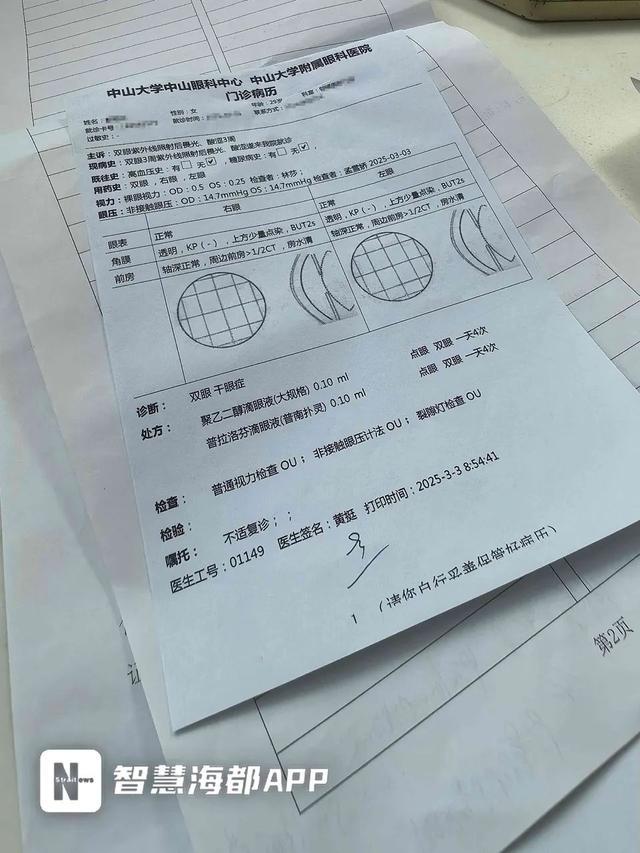 中山大学中山眼科中心 中山大学附属眼科医院
门诊病历
姓名: 性别: 女 年龄: 29岁 科室:
就诊卡号: 就诊时间: 联系方式:
过敏史: -
主诉: 双眼紫外线照射后畏光、酸涩3周
现病史: 双眼3周紫外线照射后畏光、酸涩遂来我院就诊
既往史: 高血压史: 有 无 , 糖尿病史: 有 无
用药史: 双眼 , 右眼 , 左眼
视力: 裸眼视力: OD : 0.5 OS : 0.25 检查者: 林莎 ;
眼压: 非接触眼压: OD : 14.7mmHg OS : 14.7mmHg 检查者: 孟雪娇 2025-03-03
右眼 左眼
眼表 正常 正常
角膜 透明 , KP ( - ) , 上方少量点染 , BUT2s 透明 , KP ( - ) , 上方少量点染 , BUT2s
前房 轴深正常 , 周边前房>1/2CT , 房水清 轴深正常 , 周边前房>1/2CT , 房水清
诊断: 双眼 干眼症
处方: 聚乙二醇滴眼液(大规格) 0.10 ml 点眼 双眼 一天4次
普拉洛芬滴眼液(普南扑灵) 0.10 ml 点眼 双眼 一天4次
检查: 普通视力检查 OU ; 非接触眼压计法 OU ; 裂隙灯检查 OU
检验:
嘱托: 不适复诊 ; ;
医生工号: 01149 医生签名: 黄挺 打印时间: 2025-3-3 8:54:41
1 (请你自行妥善保管好病历)
第2页
N
Strait News
智慧海都APP